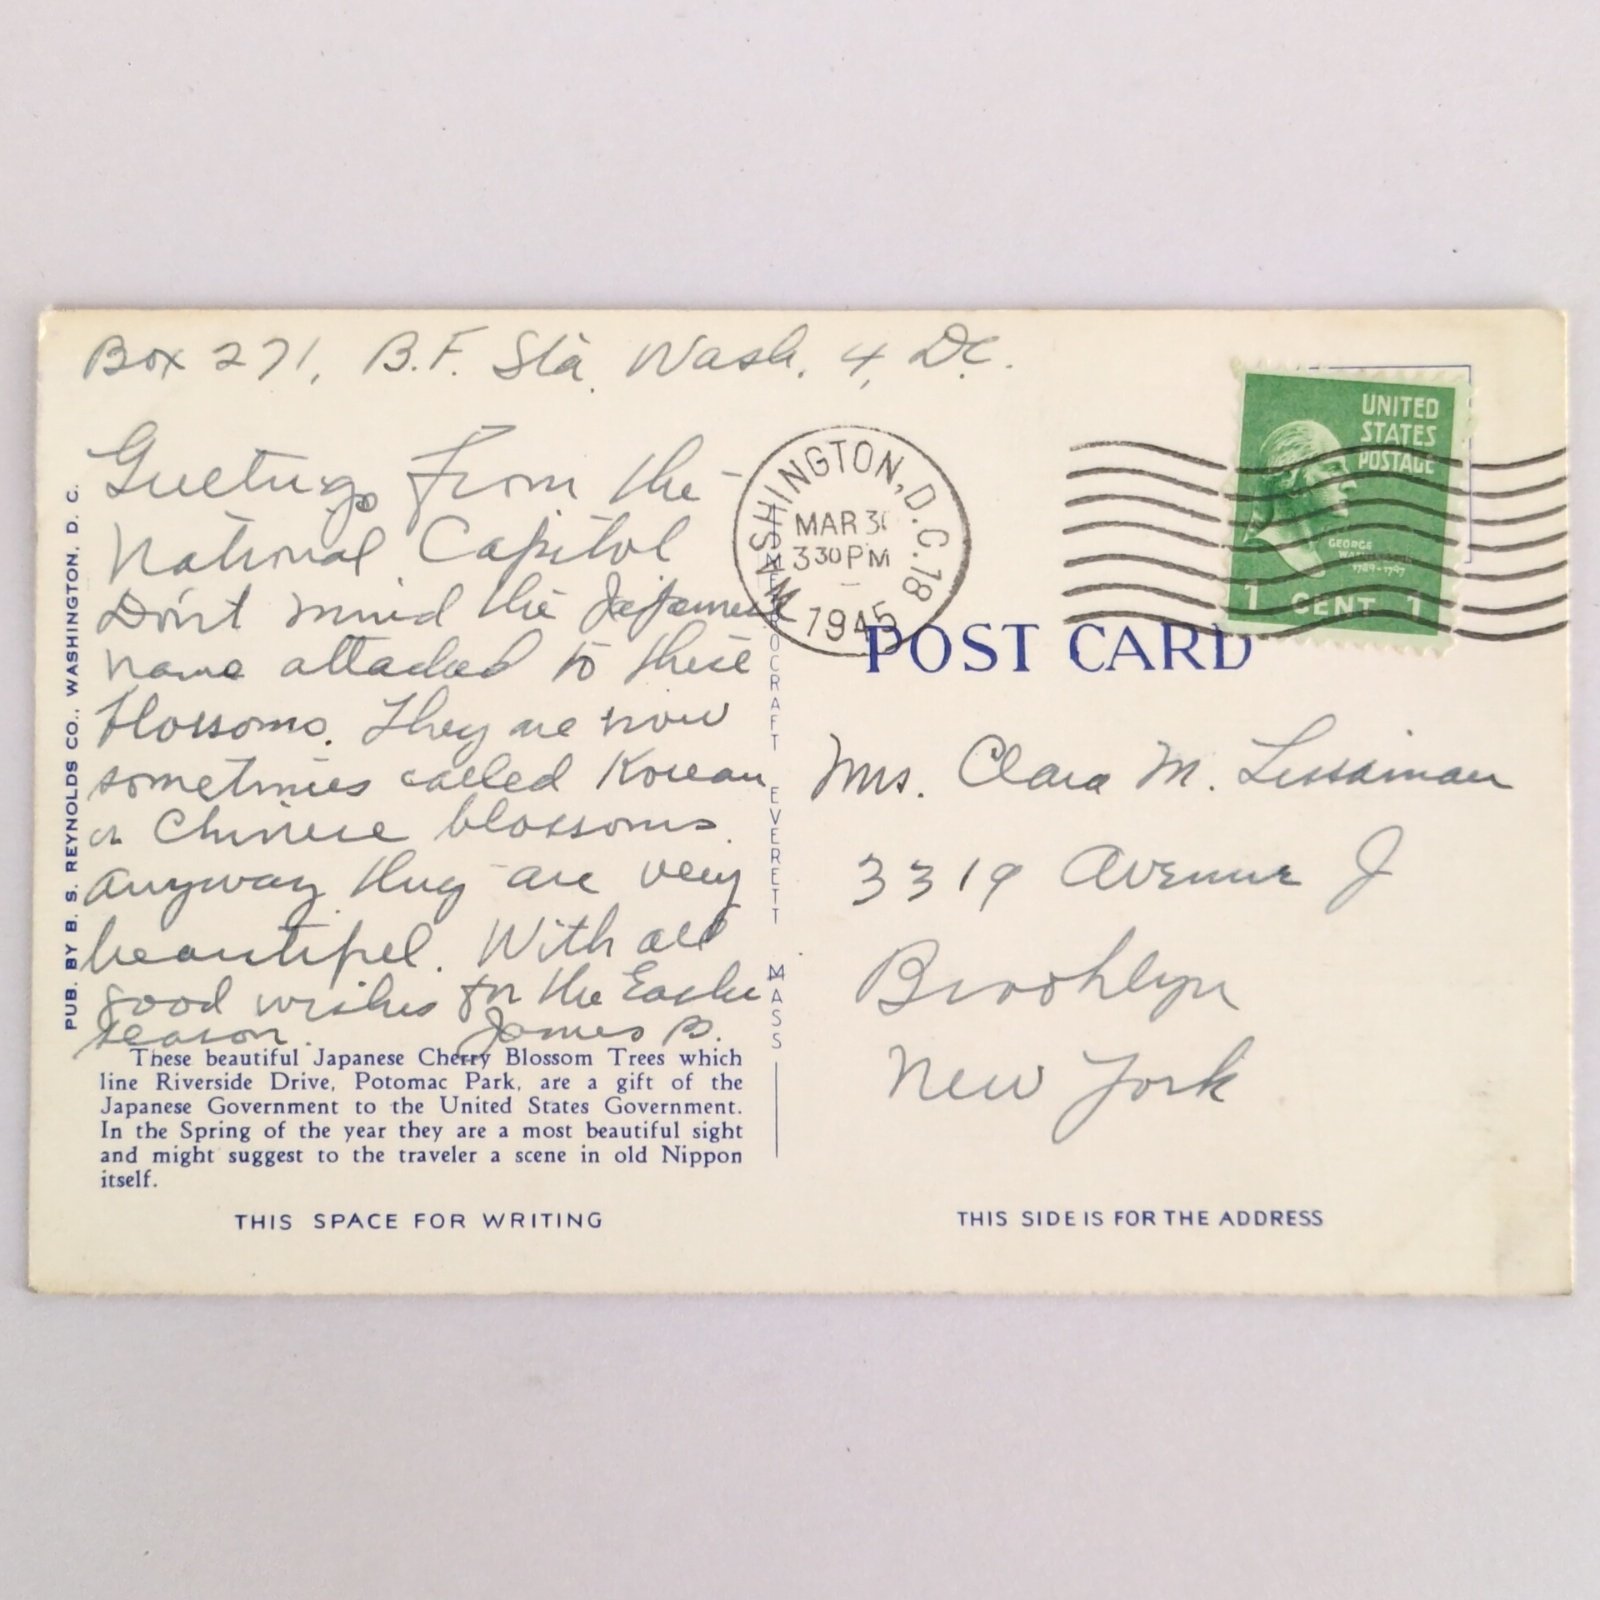 Box 271, B.F. Sta. Wash. 4, D.C.
Greetings from the
National Capitol
Don't mind the Japanese
name attached to these
blossoms. They are now
sometimes called Korean
or Chinese blossoms.
Anyway they are very
beautiful. With all
good wishes for the Easter
season. James B.
These beautiful Japanese Cherry Blossom Trees which
line Riverside Drive, Potomac Park, are a gift of the
Japanese Government to the United States Government.
In the Spring of the year they are a most beautiful sight
and might suggest to the traveler a scene in old Nippon
itself.
THIS SPACE FOR WRITING
PUB. BY B. S. REYNOLDS CO., WASHINGTON, D. C.
EVERETT MASS
WASHINGTON, D.C. 18
MAR 31
3 30 PM
1945
UNITED
STATES
POSTAGE
GEORGE
WASHINGTON
1789-1797
1 CENT 1
POST CARD
Mrs. Clara M.
3319 Avenue J
Brooklyn
New York
THIS SIDE IS FOR THE ADDRESS